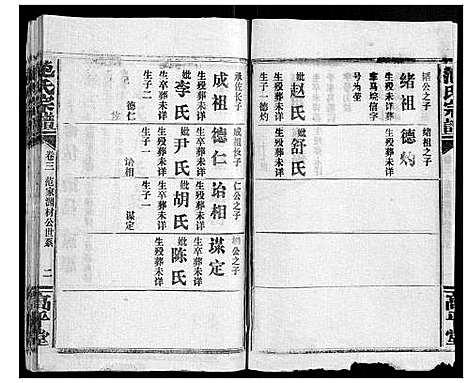 范氏宗譜
韬公之子
绪祖
生殁葬未详
妣赵氏
生殁葬未详
生子一 德灼
绪祖之子
德灼
妣舒氏
生殁葬未详
承佐长子
成祖
生殁葬未详
妣李氏
生卒葬未详
生子二
德仁
成祖长子
德仁
生殁葬未详
妣尹氏
生卒葬未详
生子一
诒相
仁公之子
诒相
生殁葬未详
妣胡氏
生卒葬未详
生子一
谋定
相公之子
谋定
生殁葬未详
妣陈氏
生卒葬未详
范氏宗譜
卷三
范家湖村公世系
二
高平堂